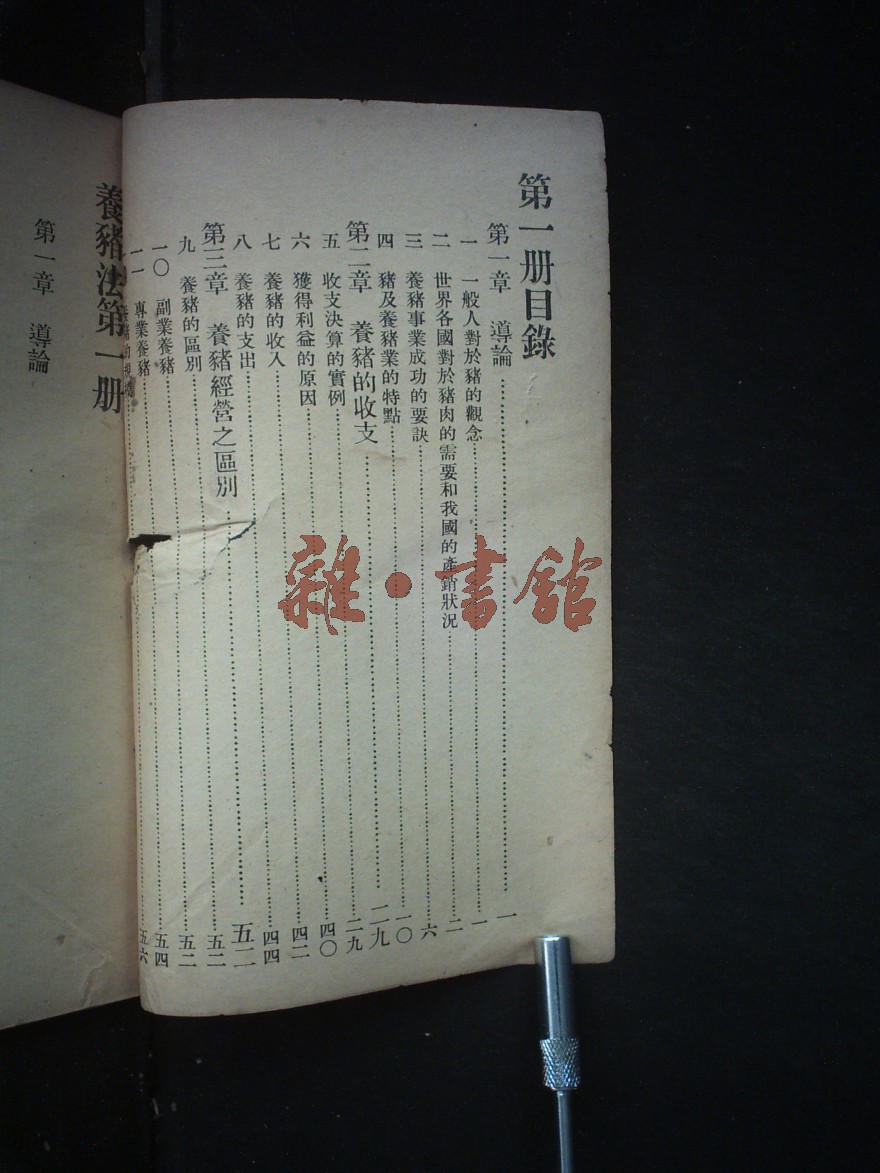 第一册目錄
第一章 導論……一
一 一般人對於豬的觀念……一
二 世界各國對於豬肉的需要和我國的產銷狀況……二
三 養豬事業成功的要訣……六
四 豬及養豬業的特點……一〇
第二章 養豬的收支……二九
五 收支決算的實例……二九
六 獲得利益的原因……四〇
七 養豬的收入……四二
八 養豬的支出……四四
第三章 養豬經營之區別……五二
九 養豬的區別……五二
一〇 副業養豬……五二
一一 專業養豬……五四
豬的……五六
養豬法第一册
第一章 導論
雜·書館